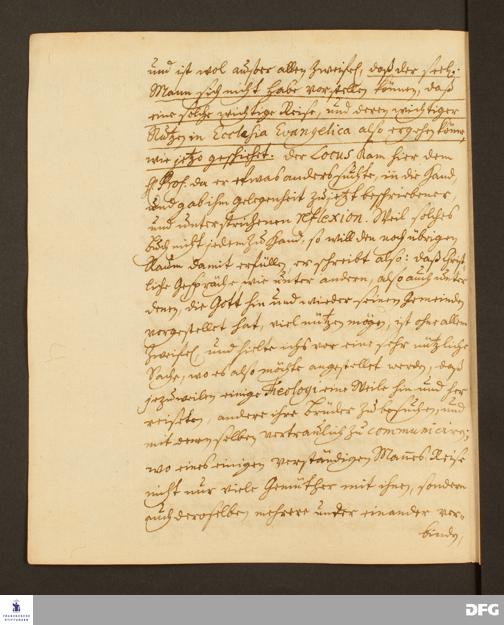 und ist wol außer allen Zweifel, daß der seel:
Mann sich nicht habe vorstellen können, daß
eine solche wichtige Reise, und deren wichtiger
Nutzen in Ecclesia Evangelica also ergehen könne,
wie jetzo geschiehet. Der Locus kam hier dem
H Prof. da er etwas anders suchte, in die Hand
und gab ihm gelegenheit zu jetzt beschriebener
und unterstrichenen reflexion. Weil solches
Buch nicht jeden zu Hand, so will den noch übrigen
Raum damit erfüllen, er schreibt also: daß
liche Gespräche wie unter andern, also auch unter
denen, die Gott hin und wieder seinen Gemeinden
vorgestellet hat, viel nützen mögen, ist ohne allen
Zweifel, und hielte ichs vor eine sehr nützliche
Sache, wo es also möchte angestellet werden, daß
jezuweilen einige Theologi eine Weile hin und her
reiseten, andere ihre Brüder zu besuchen, und
mit denenselben vertraulich zu communiciren;
wo eines einigen verständigen Mannes Reise
nicht nur viele Gemüther mit ihme, sondern
auch deroselben mehrere unter einander ver-
binden,
FRANCKESCHE
STIFTUNGEN
DFG